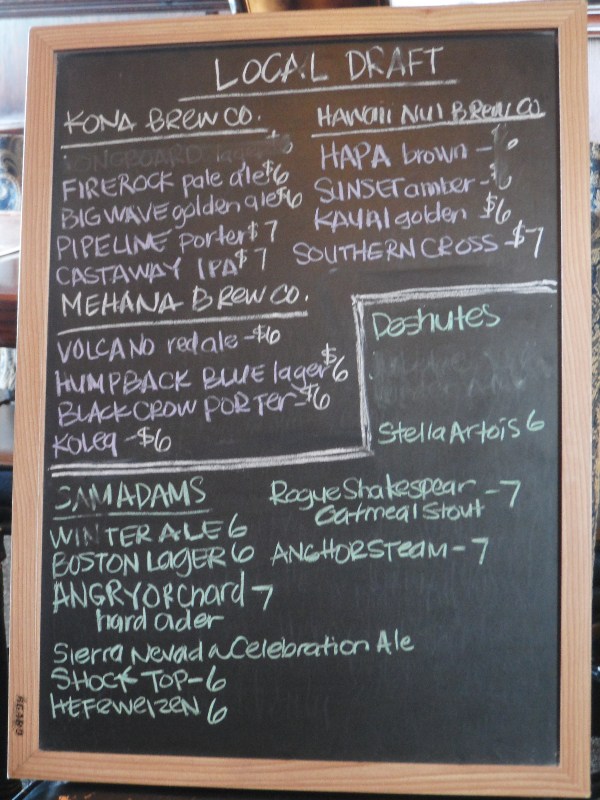 LOCAL DRAFT
KONA BREW CO.
LONGBOARD lager
FIREROCK pale ale $6
BIG WAVE golden ale $6
PIPELINE porter $7
CASTAWAY IPA $7
HAWAII NUI BREW CO
HAPA brown -
SUNSET amber -
KAUAI golden $6
SOUTHERN CROSS - $7
MEHANA BREW CO.
VOLCANO red ale - $6
HUMPBACK BLUE lager $6
BLACK CROW PORTER - $6
KOLEA - $6
Deshutes
Stella Artois 6
SAM ADAMS
WINTER ALE 6
BOSTON LAGER 6
ANGRY ORCHARD 7
hard cider
Sierra Nevada Celebration Ale
SHOCK TOP - 6
HEFEWEIZEN 6
Rogue Shakespear - 7
Oatmeal Stout
ANCHOR STEAM - 7